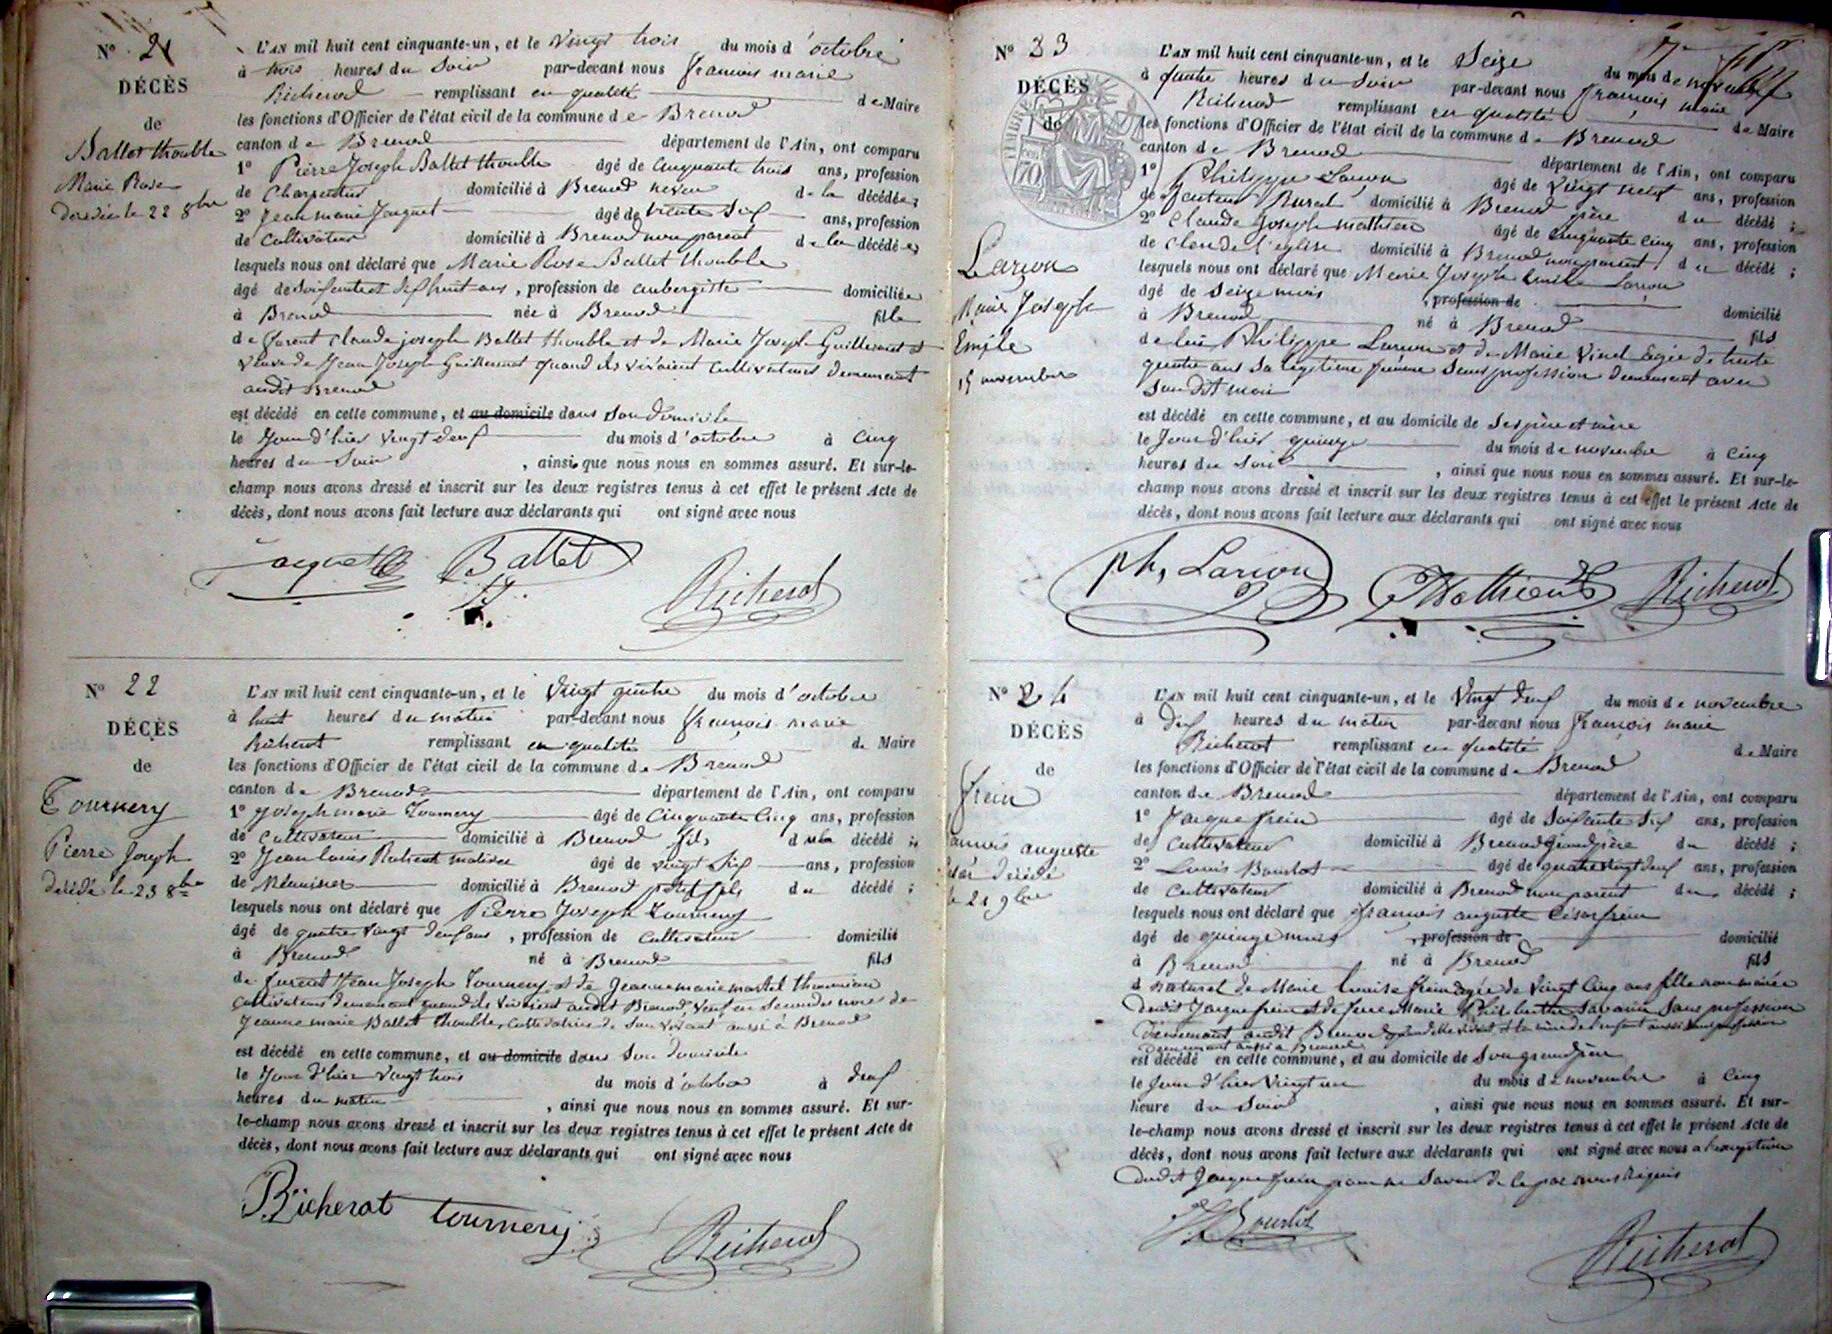 N° 21
DÉCÈS
de
Ballet thouble
Marie Rose
décédée le 22 8bre
L'AN mil huit cent cinquante-un, et le vingt trois du mois d'octobre
à trois heures du Soir par-devant nous françois marie
Richerot remplissant en qualité de Maire
les fonctions d'Officier de l'état civil de la commune de Brenod
canton de Brenod département de l'Ain, ont comparu
1° Pierre Joseph Ballet thouble âgé de Cinquante trois ans, profession
de Charpentier domicilié à Brenod neveu de la décédée;
2° Jean marie Jacquet âgé de trente Six ans, profession
de Cultivateur domicilié à Brenod non parent de la décédée,
lesquels nous ont déclaré que Marie Rose Ballet thouble
âgé de Soixante et dix huit ans, profession de aubergiste domiciliée
à Brenod née à Brenod fille
de furent Claude joseph Ballet thouble et de Marie Joseph Guillermet et
veuve de Jean Joseph Guillermet quand ils vivaient Cultivateurs demeurant
audit Brenod
est décédé en cette commune, et au domicile dans Son domicile
le Jour d'hier vingt deux du mois d'octobre à Cinq
heures du Soir, ainsi que nous nous en sommes assuré. Et sur-le-
champ nous avons dressé et inscrit sur les deux registres tenus à cet effet le présent Acte de
décès, dont nous avons fait lecture aux déclarants qui ont signé avec nous
Jacquet Ballet
Richerot
N° 22
DÉCÈS
de
Tournery
Pierre Joseph
décédé le 23 8bre
L'AN mil huit cent cinquante-un, et le Vingt quatre du mois d'octobre
à huit heures du matin par-devant nous françois marie
Richerot remplissant en qualité de Maire
les fonctions d'Officier de l'état civil de la commune de Brenod
canton de Brenod département de l'Ain, ont comparu
1° Joseph marie Tournery âgé de Cinquante Cinq ans, profession
de Cultivateur domicilié à Brenod fils du décédé;
2° Jean louis Richerot âgé de vingt Six ans, profession
de Menuisier domicilié à Brenod petit fils du décédé;
lesquels nous ont déclaré que Pierre Joseph Tournery
âgé de quatre vingt deux ans, profession de Cultivateur domicilié
à Brenod né à Brenod fils
de furent Jean Joseph Tournery et de Jeanne marie martel
Cultivateurs demeurant quand ils vivaient audit Brenod, Veuf en Secondes noces de
Jeanne marie Ballet thouble, Cultivatrice de Son vivant aussi à Brenod
est décédé en cette commune, et au domicile dans Son domicile
le Jour d'hier vingt trois du mois d'octobre à deux
heures du matin, ainsi que nous nous en sommes assuré. Et sur-
le-champ nous avons dressé et inscrit sur les deux registres tenus à cet effet le présent Acte de
décès, dont nous avons fait lecture aux déclarants qui ont signé avec nous
Richerot tournery
Richerot
N° 23
DÉCÈS
de
TIMBRE
70
Larçon
Marie Joseph
Emile
15 novembre
L'AN mil huit cent cinquante-un, et le Seize du mois de novembre
à quatre heures du Soir par-devant nous françois marie
Richerot remplissant en qualité de Maire
les fonctions d'Officier de l'état civil de la commune de Brenod
canton de Brenod département de l'Ain, ont comparu
1° Philippe Larçon âgé de vingt neuf ans, profession
de facteur Rural domicilié à Brenod père du décédé;
2° Claude Joseph mathieu âgé de Cinquante Cinq ans, profession
de clerc de l'église domicilié à Brenod non parent du décédé;
lesquels nous ont déclaré que Marie Joseph Emile Larçon
âgé de Seize mois, profession de domicilié
à Brenod né à Brenod fils
de lui Philippe Larçon et de Marie Vinel âgée de trente
quatre ans Sa légitime femme Sans profession demeurant avec
Son dit mari
est décédé en cette commune, et au domicile de Ses père et mère
le Jour d'hier quinze du mois de novembre à Cinq
heures du Soir, ainsi que nous nous en sommes assuré. Et sur-le-
champ nous avons dressé et inscrit sur les deux registres tenus à cet effet le présent Acte de
décès, dont nous avons fait lecture aux déclarants qui ont signé avec nous
ph, Larçon Mathieu Richerot
N° 24
DÉCÈS
de
frein
auguste
décédé
le 21 9bre
L'AN mil huit cent cinquante-un, et le Vingt deux du mois de novembre
à dix heures du matin par-devant nous françois marie
Richerot remplissant en qualité de Maire
les fonctions d'Officier de l'état civil de la commune de Brenod
canton de Brenod département de l'Ain, ont comparu
1° Jacque frein âgé de Soixante Six ans, profession
de Cultivateur domicilié à Brenod Grand père du décédé;
2° Louis Bourlot âgé de quatre vingt deux ans, profession
de Cultivateur domicilié à Brenod non parent du décédé;
lesquels nous ont déclaré que françois auguste César frein
âgé de quinze mois, profession de domicilié
à Brenod né à Brenod fils
naturel de Marie louise frein agée de Vingt Cinq ans fille non mariée
dudit Jacque frein et de feue Marie Philiberthe Savarin Sans profession
demeurant audit Brenod quand elle vivait et la mère de l'enfant aussi Sans profession
demeurant aussi à Brenod
est décédé en cette commune, et au domicile de Son grand père
le Jour d'hier Vingt un du mois de novembre à Cinq
heure du Soir, ainsi que nous nous en sommes assuré. Et sur-
le-champ nous avons dressé et inscrit sur les deux registres tenus à cet effet le présent Acte de
décès, dont nous avons fait lecture aux déclarants qui ont signé avec nous a l'exception
dudit Jacque frein pour ne Savoir de ce par nous Requis
Bourlot
Richerot